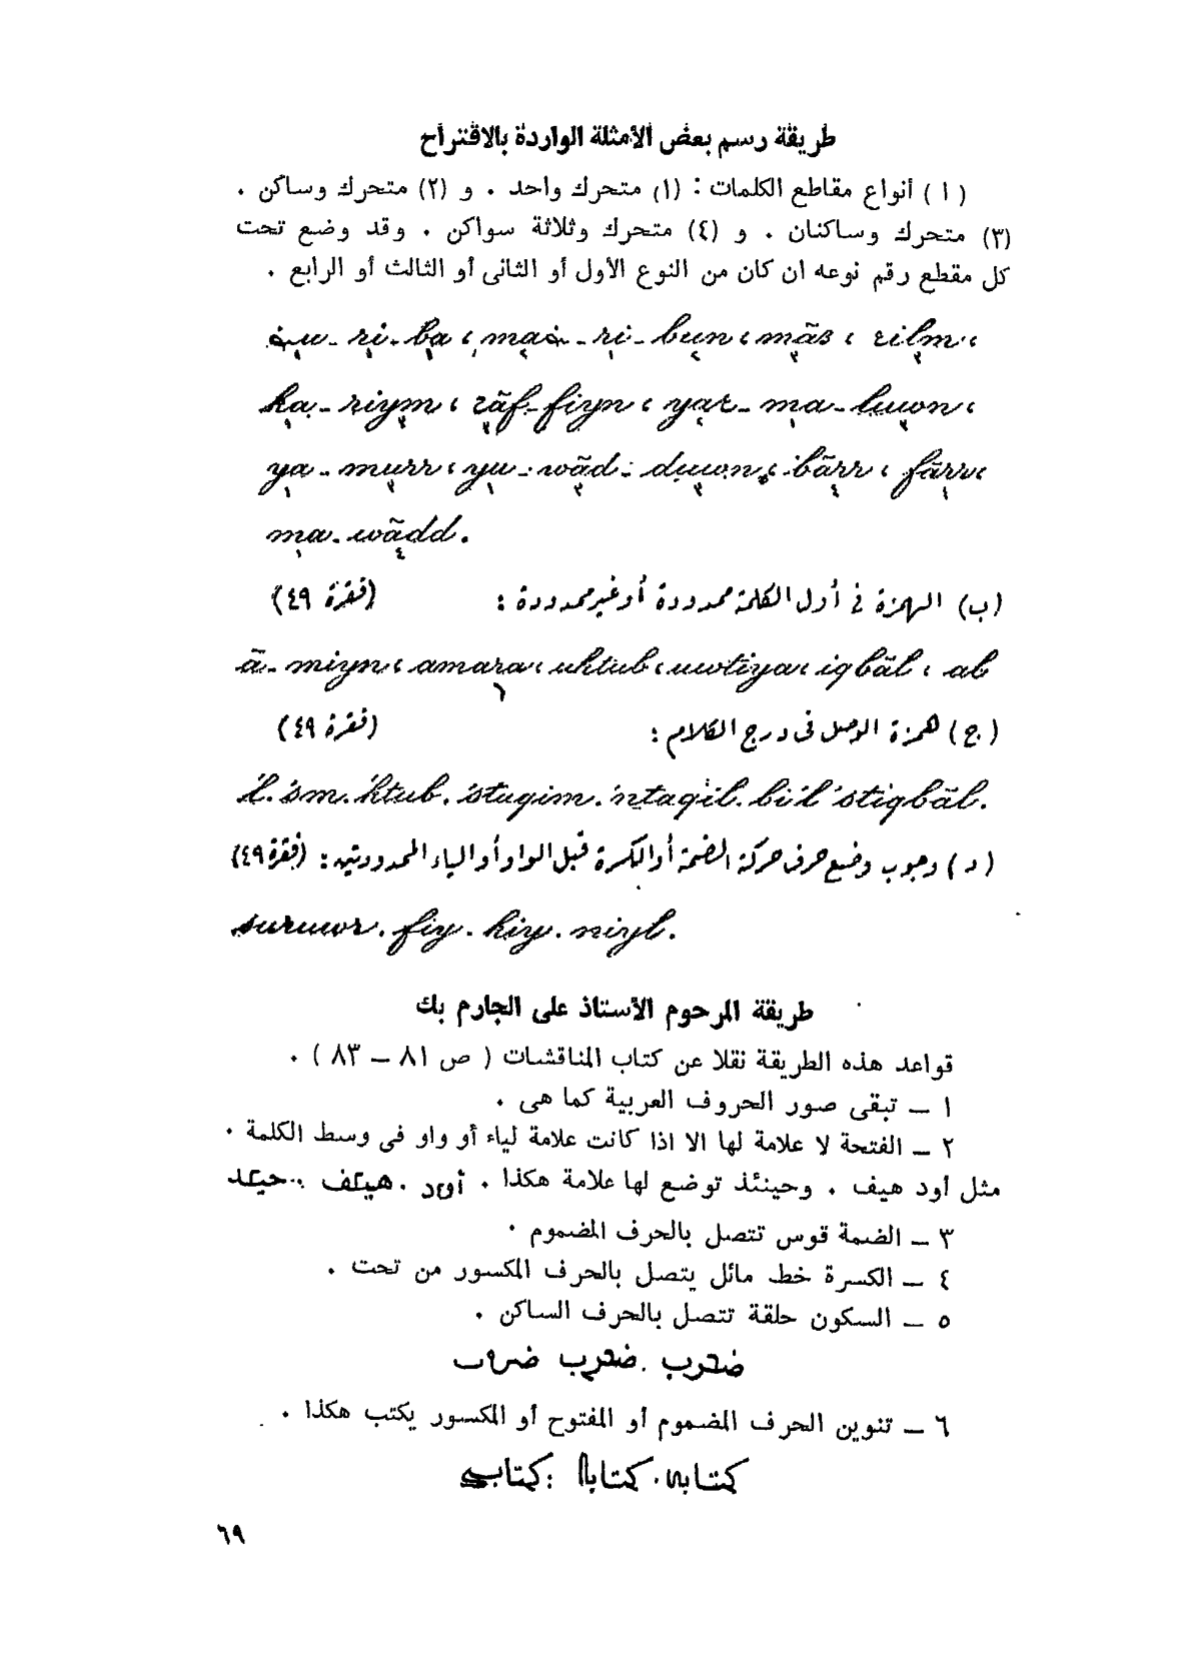 طريقة رسم بعض الأمثلة الواردة بالاقتراح
( ا ) أنواع مقاطع الكلمات : (١) متحرك واحد . و (٢) متحرك وساكن .
(٣) متحرك وساكنان . و (٤) متحرك وثلاثة سواكن . وقد وضع تحت
كل مقطع رقم نوعه ان كان من النوع الأول أو الثانى أو الثالث أو الرابع .
ri - ba ، - ri - bun ، mās ،
ka - riym ، - fiyn ، - ma - luwon ،
ya - murr ، yu - wād - duwon ، bārr ، fārr ،
ma - wādd .
(ب) الهمزة فى أول الكلمة ممدودة أو غير ممدودة : (فقرة ٤٩)
ā - miyn ، amara ، uktub ، uwtiya ، iqbāl ، ab
(ج) همزة الوصل فى درج الكلام : (فقرة ٤٩)
'l . 'sm . 'ktub . 'staqim . 'ntaqil . bi'l 'stiqbāl .
(د) وجوب وضع حرف حركة الضمة أو الكسرة قبل الواو أو الياء الممدودتين : (فقرة ٤٩)
suruwr . fiy . hiy . niyl .
طريقة المرحوم الأستاذ على الجارم بك
قواعد هذه الطريقة نقلا عن كتاب المناقشات ( ص ٨١ – ٨٣ ) .
١ – تبقى صور الحروف العربية كما هى .
٢ – الفتحة لا علامة لها الا اذا كانت علامة لياء أو واو فى وسط الكلمة .
مثل أود هيف . وحينئذ توضع لها علامة هكذا .
٣ – الضمة قوس تتصل بالحرف المضموم .
٤ – الكسرة خط مائل يتصل بالحرف المكسور من تحت .
٥ – السكون حلقة تتصل بالحرف الساكن .
٦ – تنوين الحرف المضموم أو المفتوح أو المكسور يكتب هكذا .
٦٩